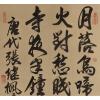 月落烏啼
火對愁眠
寺夜半鐘
唐代張繼楓